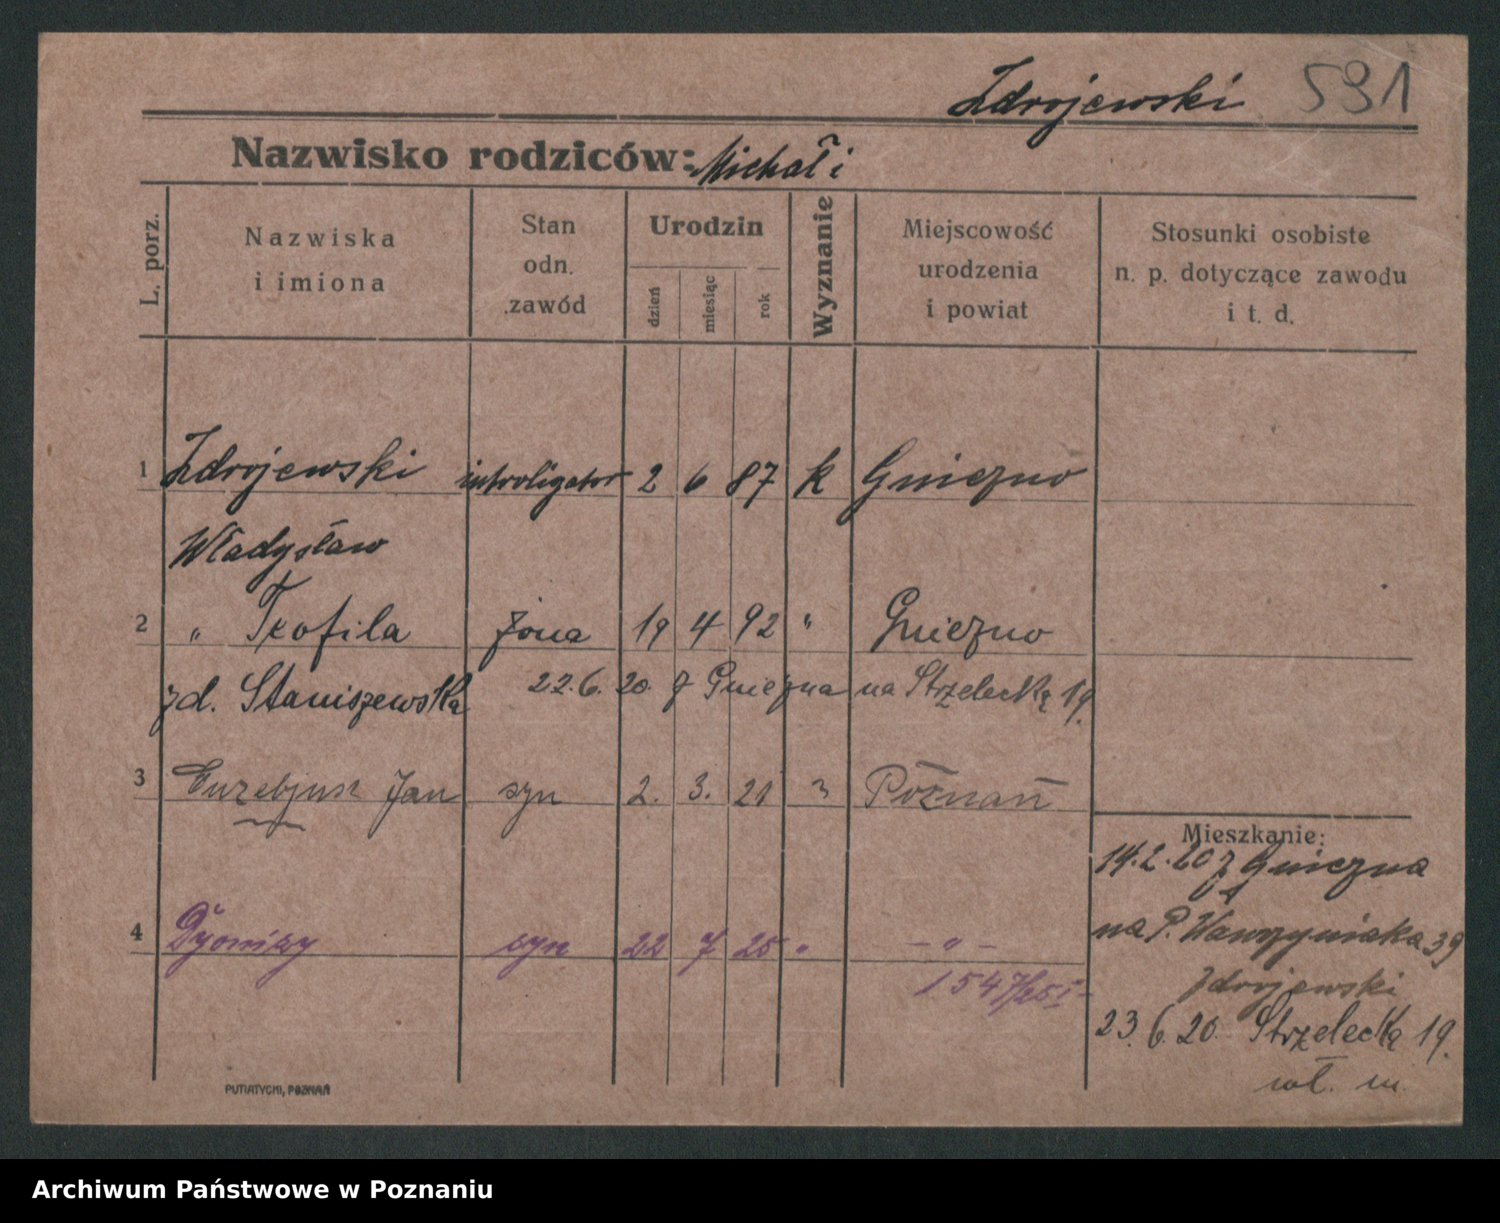 Zdrojewski 591
Nazwisko rodziców: Michał i
L. porz. Nazwiska i imiona Stan odn. zawód Urodzin dzień miesiąc rok Wyznanie Miejscowość urodzenia i powiat Stosunki osobiste n. p. dotyczące zawodu i t. d.
1 Zdrojewski introligator 2 6 87 k Gniezno
Władysław
2 " Teofila żona 19 4 92 " Gniezno
zd. Staniszewska 22.6.20. z Gniezna na Strzelecką 19.
3 Euzebjusz Jan syn 2. 3. 21 " Poznań
Mieszkanie:
14.2.20 z Gniezna
4 Dyonizy syn 22 7 25 " – " –
na P. Wawrzyniaka 39
1547/25 I
Zdrojewski
23.6.20. Strzelecka 19.
wł. m.
PUTIATYCKI, POZNAŃ
Archiwum Państwowe w Poznaniu